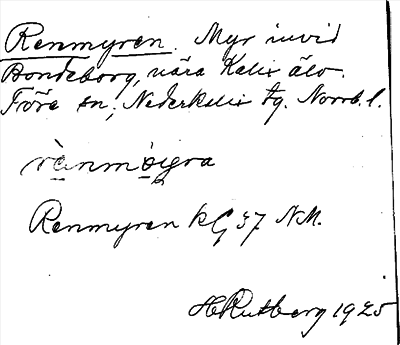 Renmyren. Myr invid
Bondeborg, nära Kalix älv.
Töre sn; Nederkalix tg. Norrb. l.
Renmyren kG 37 N.M.
H Rutberg 1925